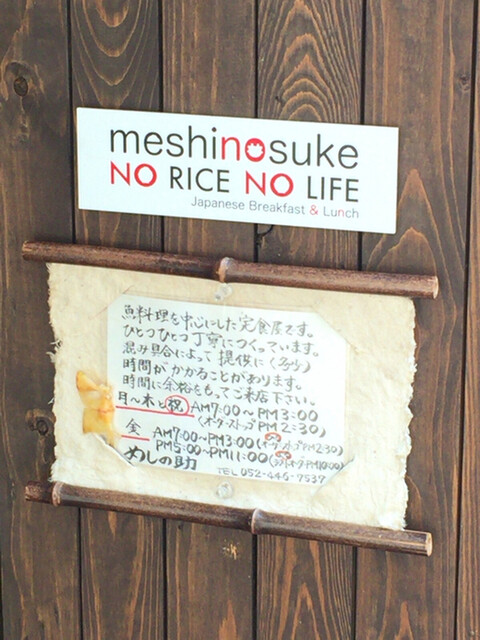 meshinosuke
NO RICE NO LIFE
Japanese Breakfast & Lunch
魚料理を中心にした定食屋です。
ひとつひとつ丁寧につくっています。
混み具合によって提供に(多少)
時間がかかることがあります。
時間に余裕をもってご来店下さい。
月〜木と祝 AM7:00〜PM3:00
(オーダーストップPM2:30)
金 AM7:00〜PM3:00(オーダーストップPM2:30)
PM5:00〜PM11:00(ラストオーダーPM10:00)
めしの助 TEL 052-446-7537